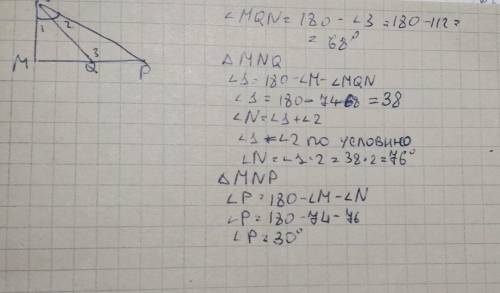 1 2
3
M Q P
∠MQN = 180 - ∠3 = 180 - 112 =
= 68°
△ MNQ
∠1 = 180 - ∠M - ∠MQN
∠1 = 180 - 74 - 68 = 38
∠N = ∠1 + ∠2
∠1 = ∠2 по условию
∠N = ∠1 · 2 = 38 · 2 = 76°
△ MNP
∠P = 180 - ∠M - ∠N
∠P = 180 - 74 - 76
∠P = 30°